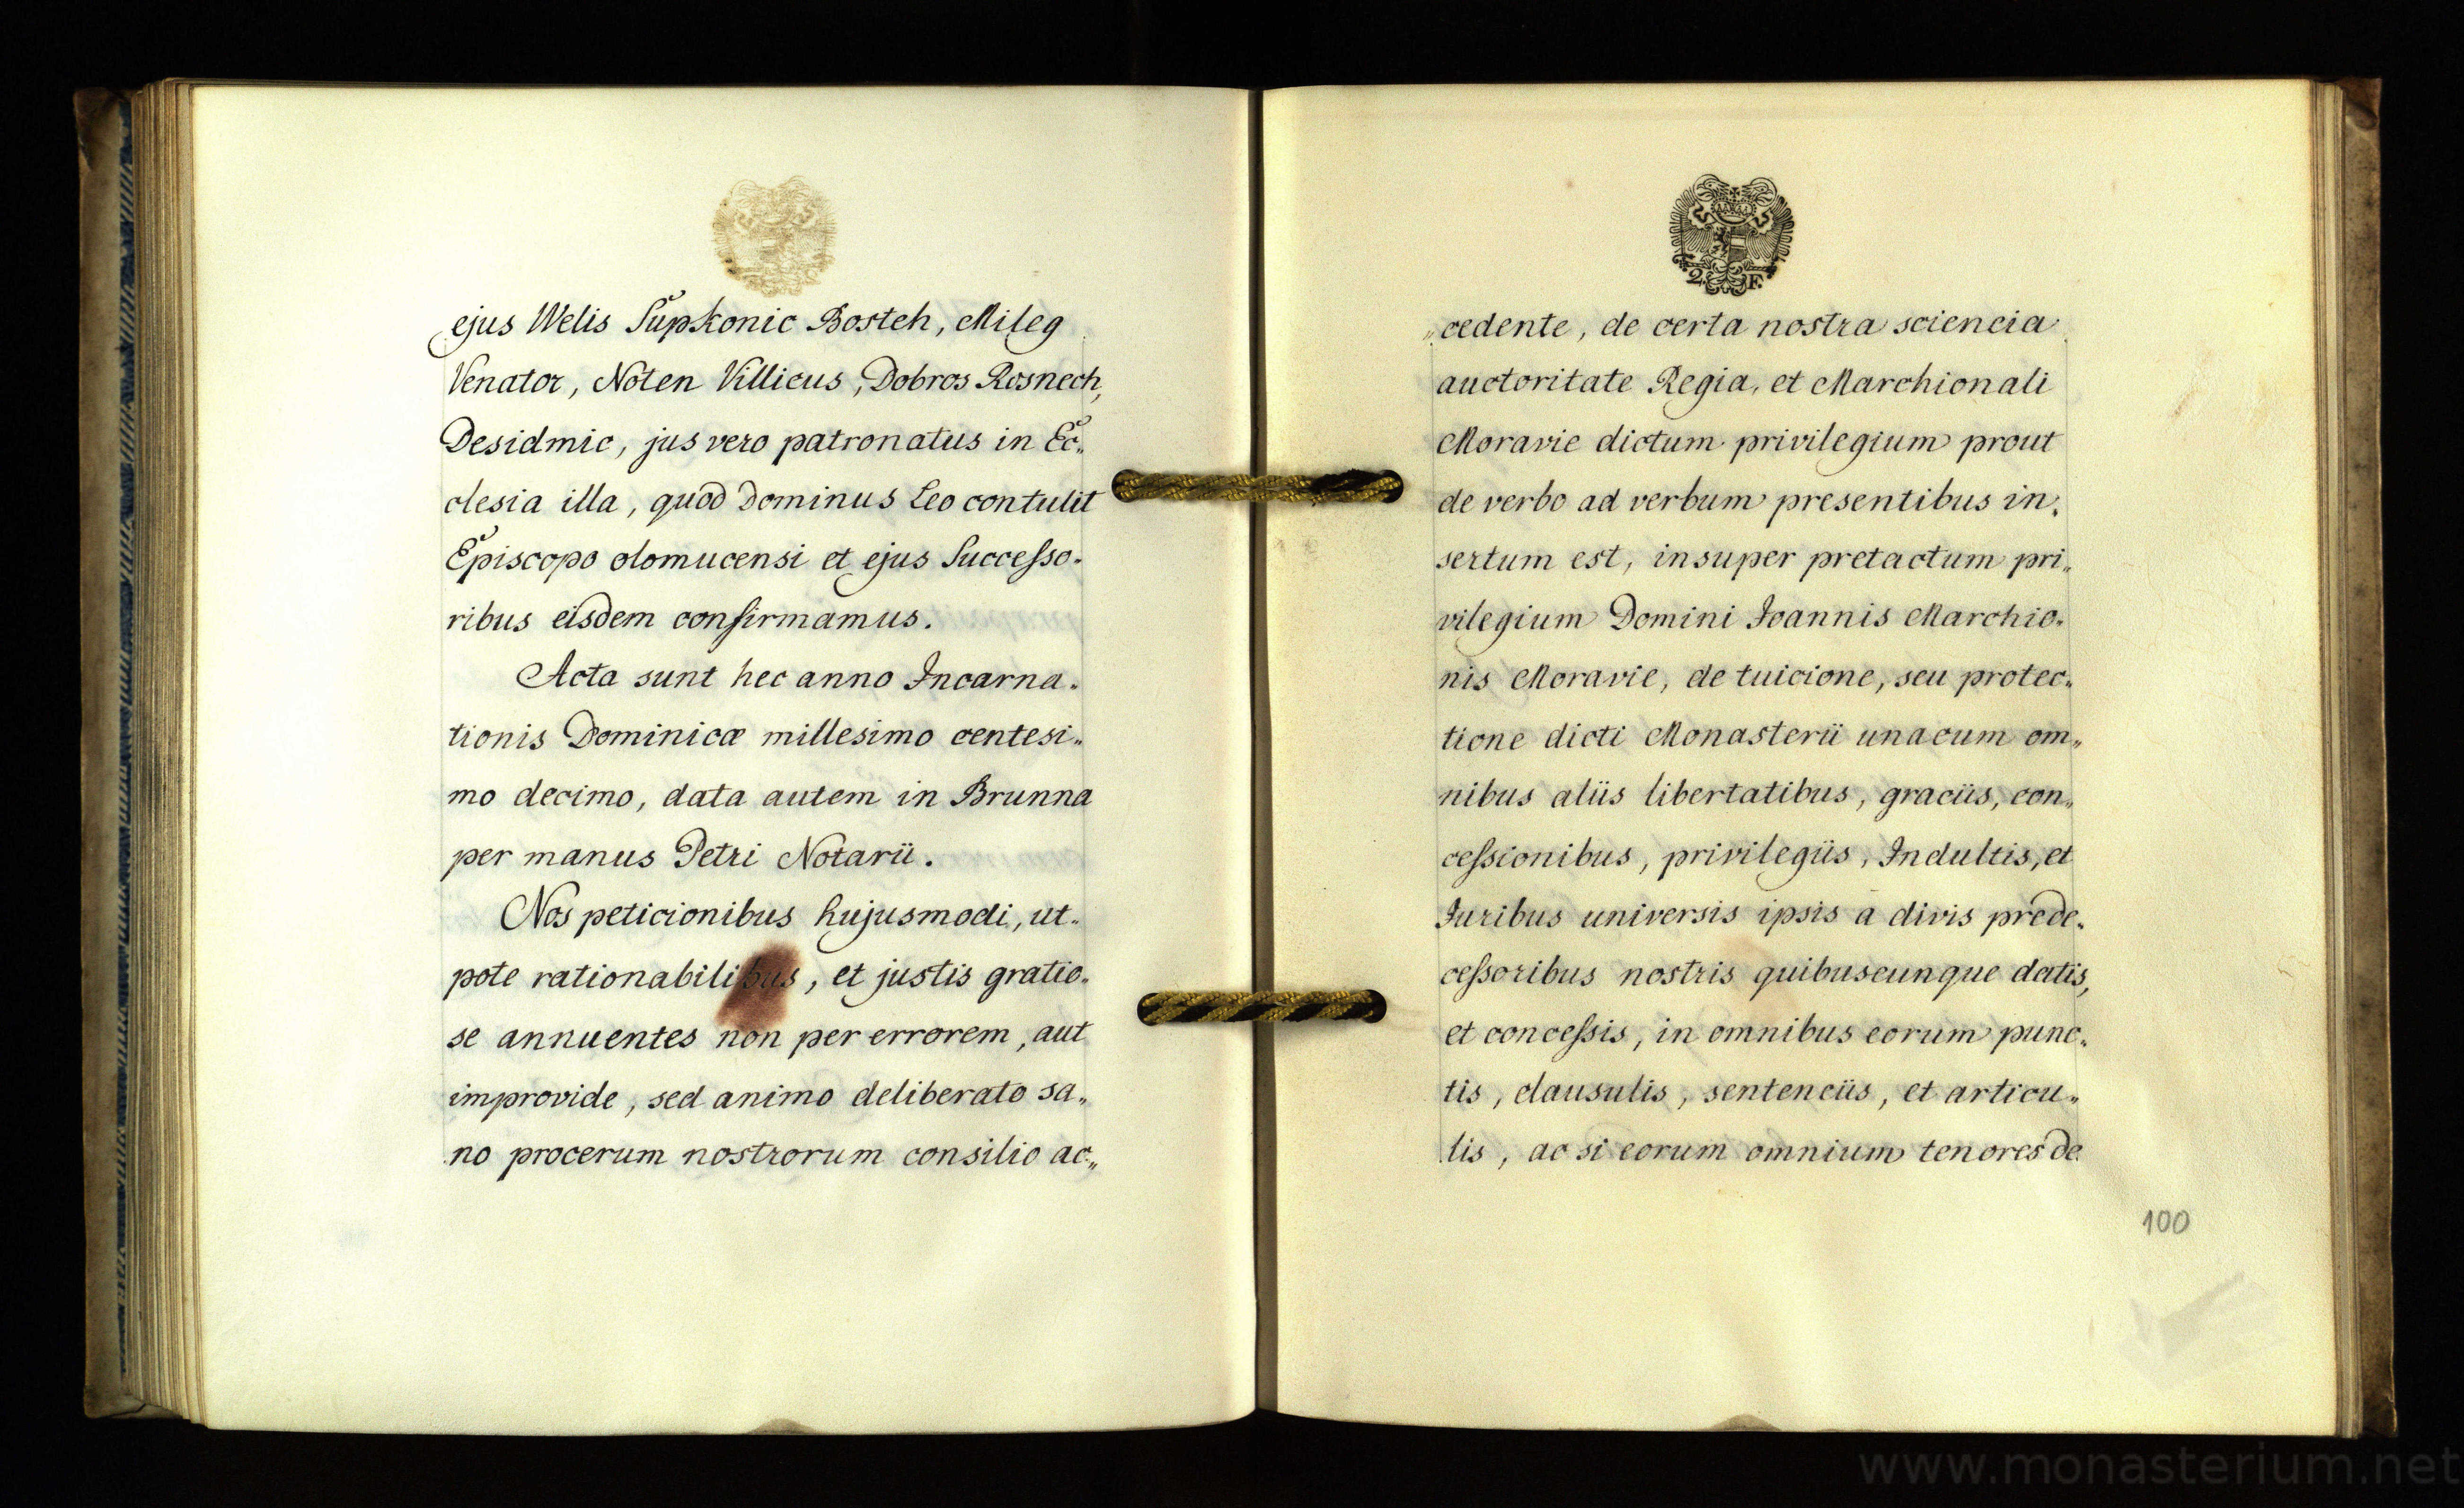 ejus Welis Supkonic Bosteh, Mileg
Venator, Noten Villicus, Dobros Rosnech,
Desidmic, jus vero patronatus in Ec„
clesia illa, quod Dominus Leo contulit
Episcopo olomucensi et ejus Successo„
ribus eisdem confirmamus.
Acta sunt hec anno Incarna„
tionis Dominicæ millesimo centesi„
mo decimo, data autem in Brunna
per manus Petri Notarii.
Nos peticionibus hujusmodi, ut„
pote rationabilibus, et justis gratio„
se annuentes non per errorem, aut
improvide, sed animo deliberato sa„
no procerum nostrorum consilio ac„
2. F.
„cedente, de certa nostra sciencia
auctoritate Regia, et Marchionali
Moravie dictum privilegium prout
de verbo ad verbum presentibus in„
sertum est, insuper pretactum pri„
vilegium Domini Ioannis Marchio„
nis Moravie, de tuicione, seu protec„
tione dicti Monasterii unacum om„
nibus aliis libertatibus, graciis, con„
cessionibus, privilegiis, Indultis, et
Iuribus universis ipsis a divis prede„
cessoribus nostris quibuscunque datis,
et concessis, in omnibus eorum punc„
tis, clausulis, sentenciis, et articu„
lis, ac si eorum omnium tenores de
100
www.monasterium.net